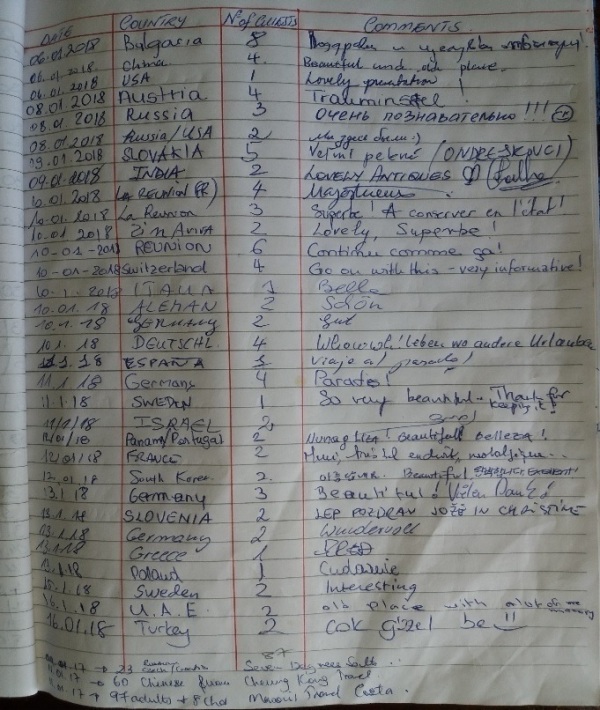 DATE COUNTRY Nº of GUESTS COMMENTS
06.01.2018 Bulgaria 8
06.01.2018 China 4. Beautiful and old place.
06.01.2018 USA 1 Lovely presentation !
08.01.2018 Austria 4
08.01.2018 Russia 3 очень познавательно !!!
08.01.2018 Russia/USA 2 Мы здесь были :)
09.01.2018 SLOVAKIA 5 Veľmi pekné
09.01.2018 INDIA 2 LOVELY ANTIQUES
10.01.2018 La REUNION (FR) 4 Majestueux
10.01.2018 La Reunion 3 Superbe ! A conserver en l'état !
10.01 2018 2 Lovely, Superbe !
10-01-2018 REUNION 6 Continu comme ça!
10-01-2018 Switzerland 4 Go on with this - very informative!
10.1.2018 1 Bella
10.01.18 ALEMAN 2 Schön
10.1.18 GERMANY 2 gut
10.1.18 DEUTSCHL. 4 Leben wo andere Urlauben
11.1.18 ESPAÑA 1 Viaje al pasado!
11.1.18 Germany 4
11.1.18 SWEDEN 1 So very beautiful - Thank for keeping it!
11/1/18 ISRAEL 2
12/01/18 Panam/Portugal 2 Beautifull belleza!
12/01/18 FRANCE 2
12.01.18 South Korea 2. Beautiful
13.1.18 Germany 3 Beautiful! Vielen Dank!
13.1.18 SLOVENIA 2 LEP POZDRAV JOŽE IN CHRISTINE
13.1.18 Germany 2 Wundervoll
13.1.18 Greece 1
13.1.18 Poland 1 Cudownie
15.1.18 Sweden 2 Interesting
16.1.18 U.A.E. 2 old place with a lot of
16.01.18 Turkey 2 cok güzel be
87
17 → 23 Seven Degrees South
17 → 60 Chinese from Cheung Kong Travel
17 → 97 adults + 8 Chd Travel Costa.